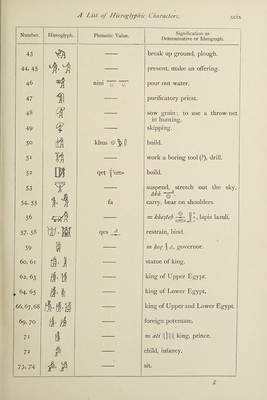 A List of Hieroglyphic Characters. xcix
Number. Hieroglyph. Phonetic Value. Signification as Determinative or Ideograph.
43 break up ground, plough.
44, 45 present, make an offering.
46 nini pour out water.
47 purificatory priest.
48 sow grain; to use a throw-net in hunting.
49 skipping.
50 khus build.
51 work a boring tool (?), drill.
52 qeṭ build.
53 suspend, stretch out the sky,
54, 55 fa carry, bear on shoulders.
56 lapis lazuli.
57, 58 qes restrain, bind.
59 governor.
60, 61 statue of king.
62, 63 king of Upper Egypt.
64, 65 king of Lower Egypt.
66, 67, 68 king of Upper and Lower Egypt.
69, 70 foreign potentate.
71 king, prince.
72 child, infancy.
73, 74 sit.